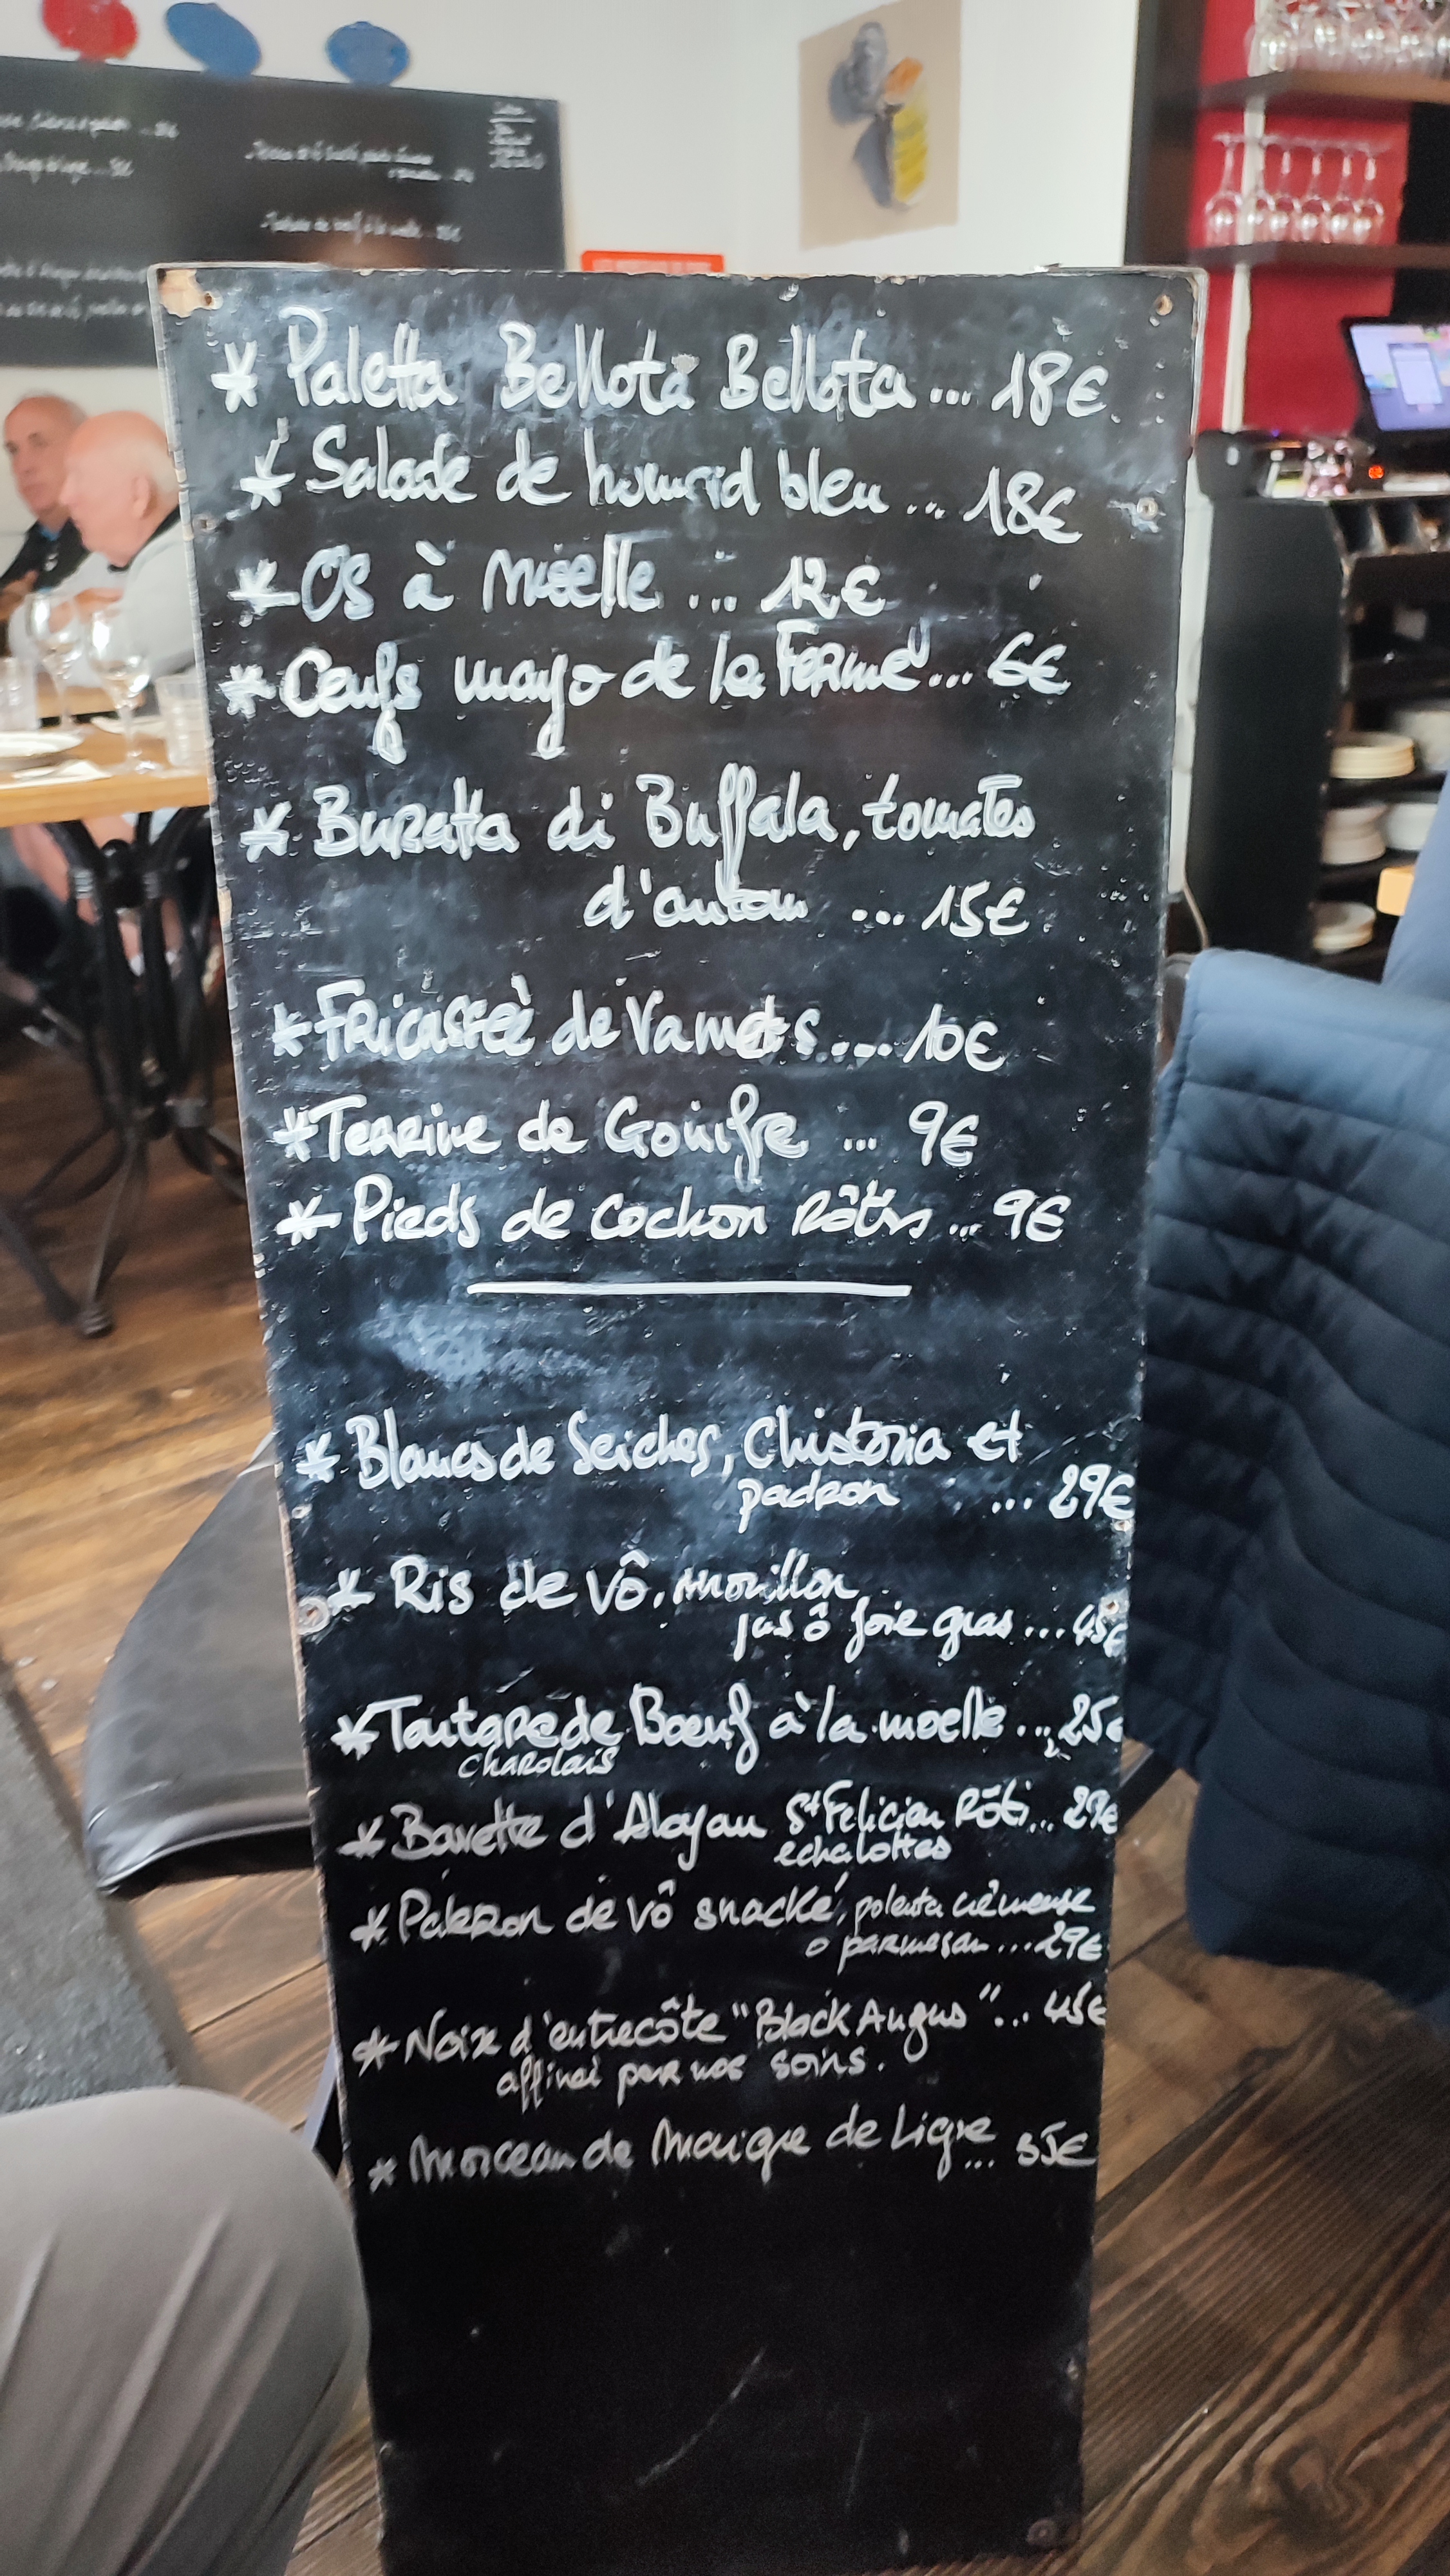 * Paletta Bellota Bellota ... 18€
* Salade de homard bleu ... 18€
* Os à moelle ... 12€
* Oeufs mayo de la Ferme ... 6€
* Buratta di Buffala, tomates
d'antan ... 15€
* Fricassée de Vanets .... 10€
* Terrine de Gouife ... 9€
* Pieds de cochon Rôtis ... 9€
* Blancs de Seiches, Chistoria et
padron ... 29€
* Ris de vô, morillon
jus ô foie gras ... 45€
* Tartare de Boeuf à la moelle ... 25€
charolais
* Bavette d'Aloyau St Felicien Rôti ... 29€
echalottes
* Paleron de vô snacké, polenta crèmeuse
o parmesan ... 29€
* Noix d'entrecôte "Black Angus" ... 45€
affinéi par nos soins.
* Morceau de Maigre de Ligne ... 35€